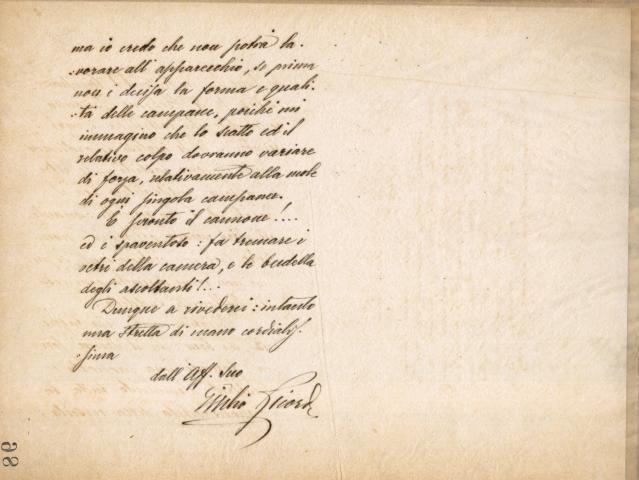 ma io credo che non potrà la-
-vorare all'apparecchio, se prima
non è decisa la forma e quali-
-tà delle campane, poichè mi
immagino che lo scatto ed il
relativo colpo dovranno variare
di forza, relativamente alla mole
di ogni singola campana.
È pronto il cannone!....
ed è spaventoso: fa tremare i
vetri della camera, e le budella
degli ascoltanti!...
Dunque a rivederci: intanto
una stretta di mano cordialis-
-sima
dall'Aff. Suo
Giulio Ricordi
86